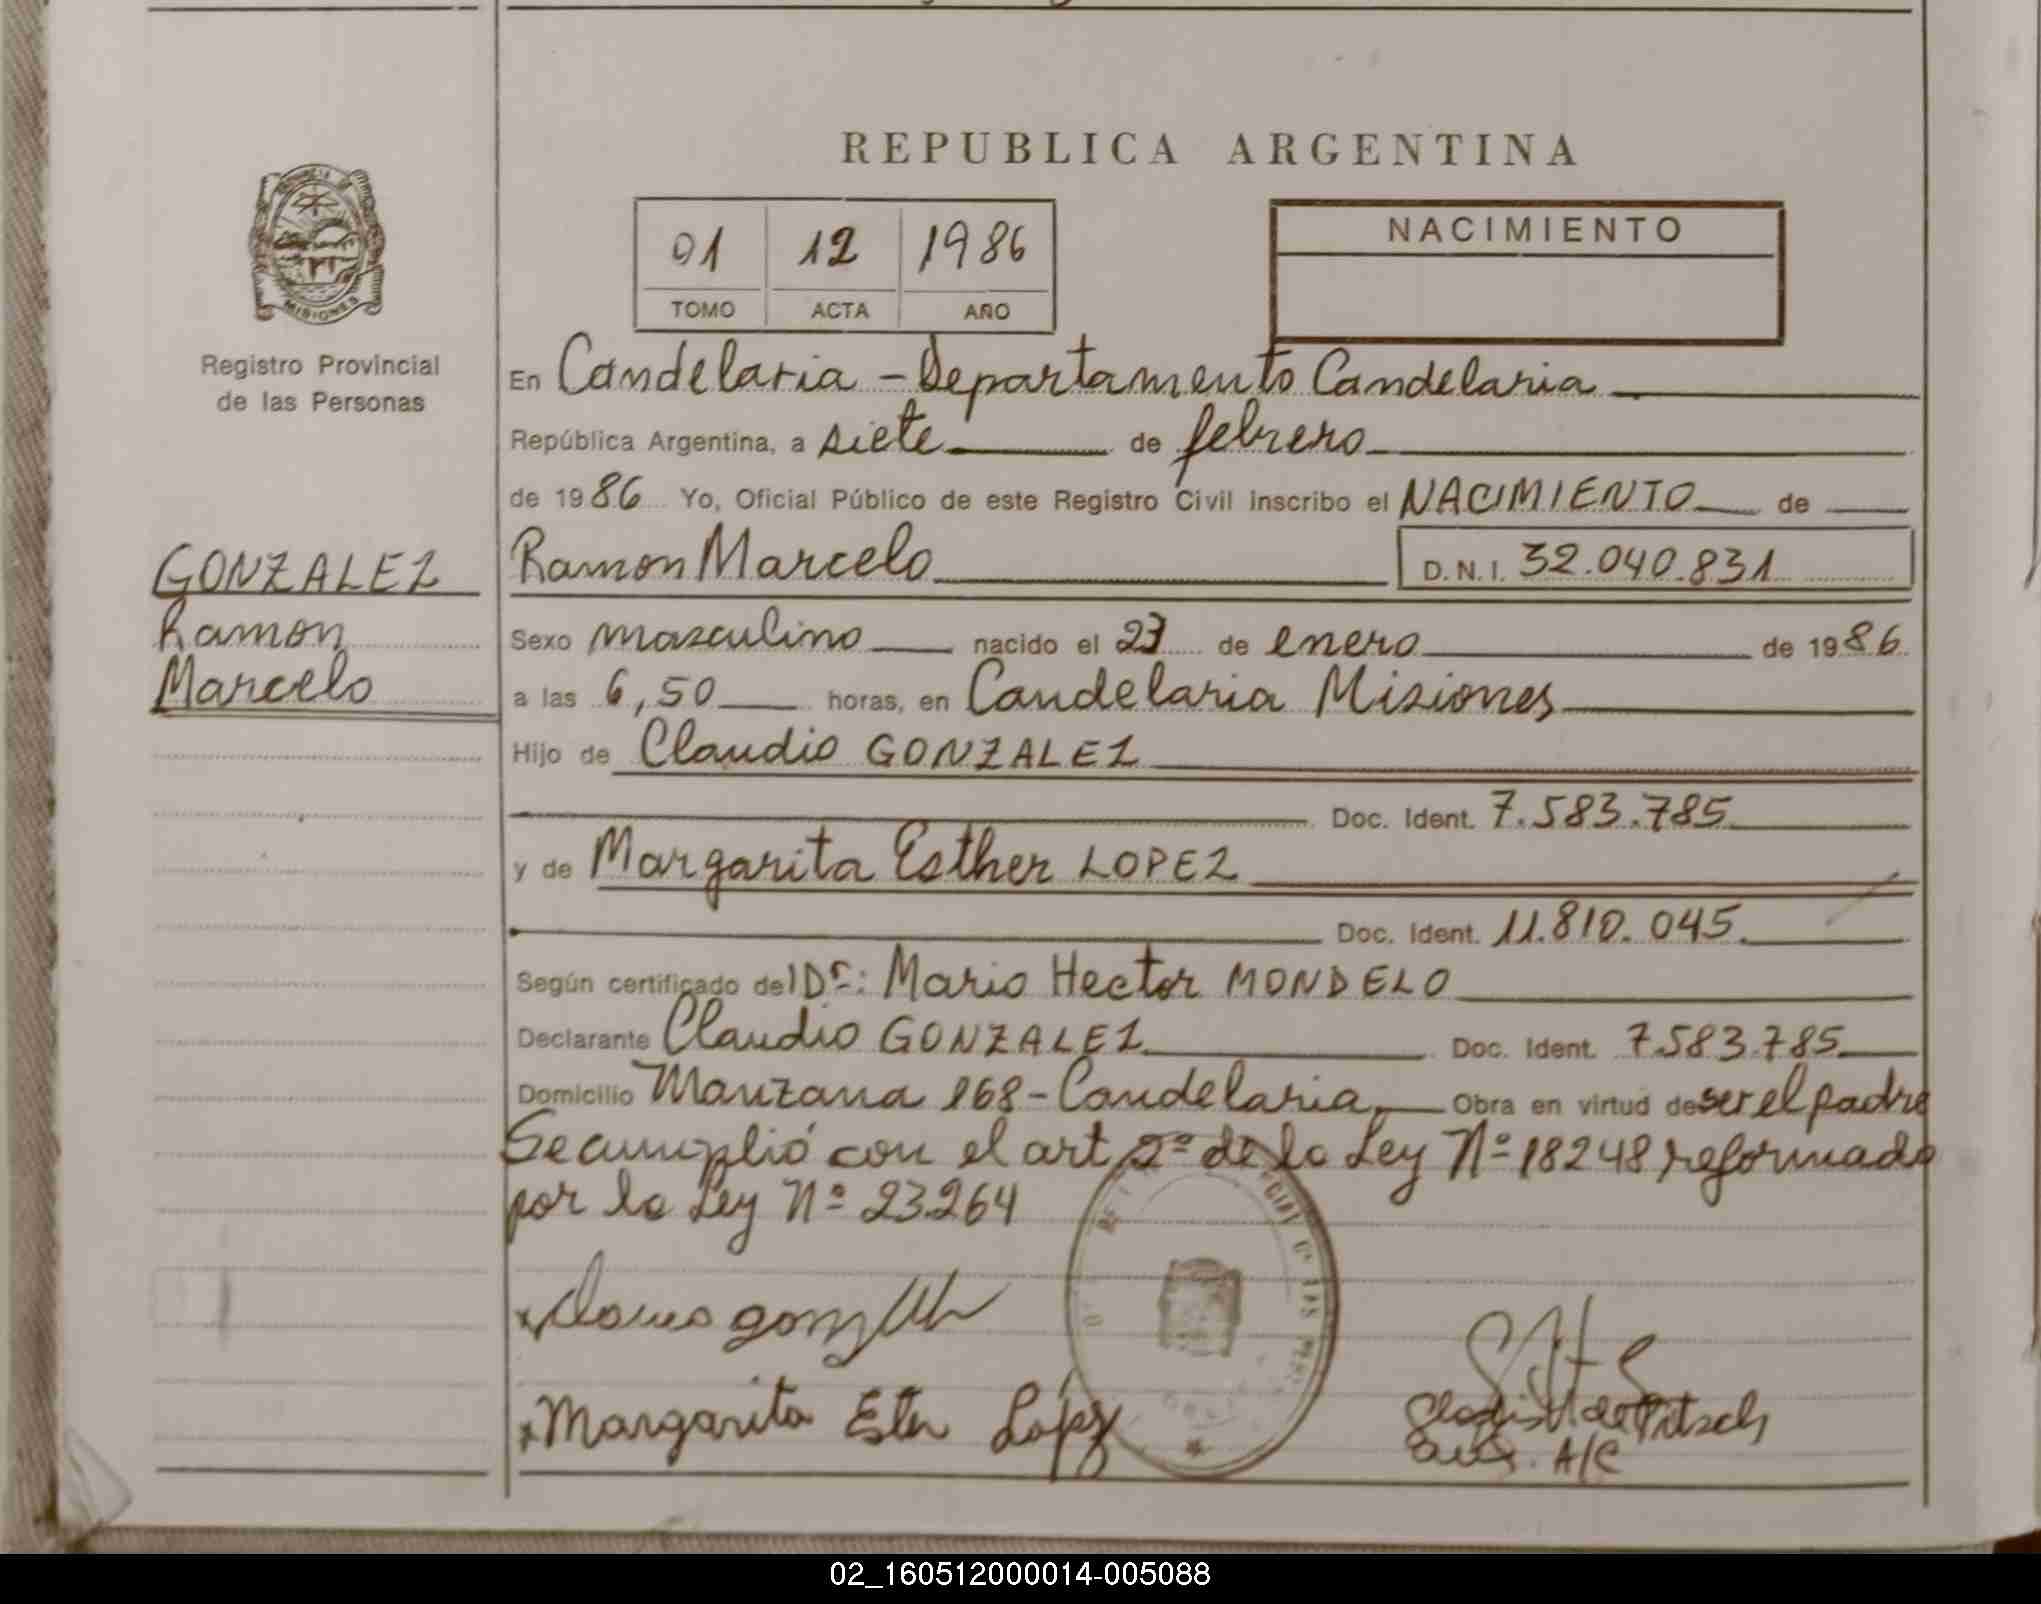 REPUBLICA ARGENTINA
PROVINCIA DE
MISIONES
Registro Provincial
de las Personas
01 12 1986
TOMO ACTA AÑO
NACIMIENTO
En Candelaria - Departamento Candelaria
República Argentina, a siete de febrero
de 1986 Yo, Oficial Público de este Registro Civil inscribo el NACIMIENTO de
GONZALEZ
Ramon
Marcelo
Ramon Marcelo D.N.I. 32.040.831
Sexo masculino nacido el 23 de enero de 1986
a las 6,50 horas, en Candelaria Misiones
Hijo de Claudio GONZALEZ
Doc. Ident. 7.583.785
y de Margarita Esther LOPEZ
Doc. Ident. 11.810.045
Según certificado del Dr: Mario Hector MONDELO
Declarante Claudio GONZALEZ Doc. Ident. 7.583.785
Domicilio Manzana 168 - Candelaria, Obra en virtud de ser el padre
Se cumplió con el art. 2º de la Ley Nº 18248 reformado
por la Ley Nº 23.264
Margarita Ester López
Aux. A/C
02_160512000014-005088